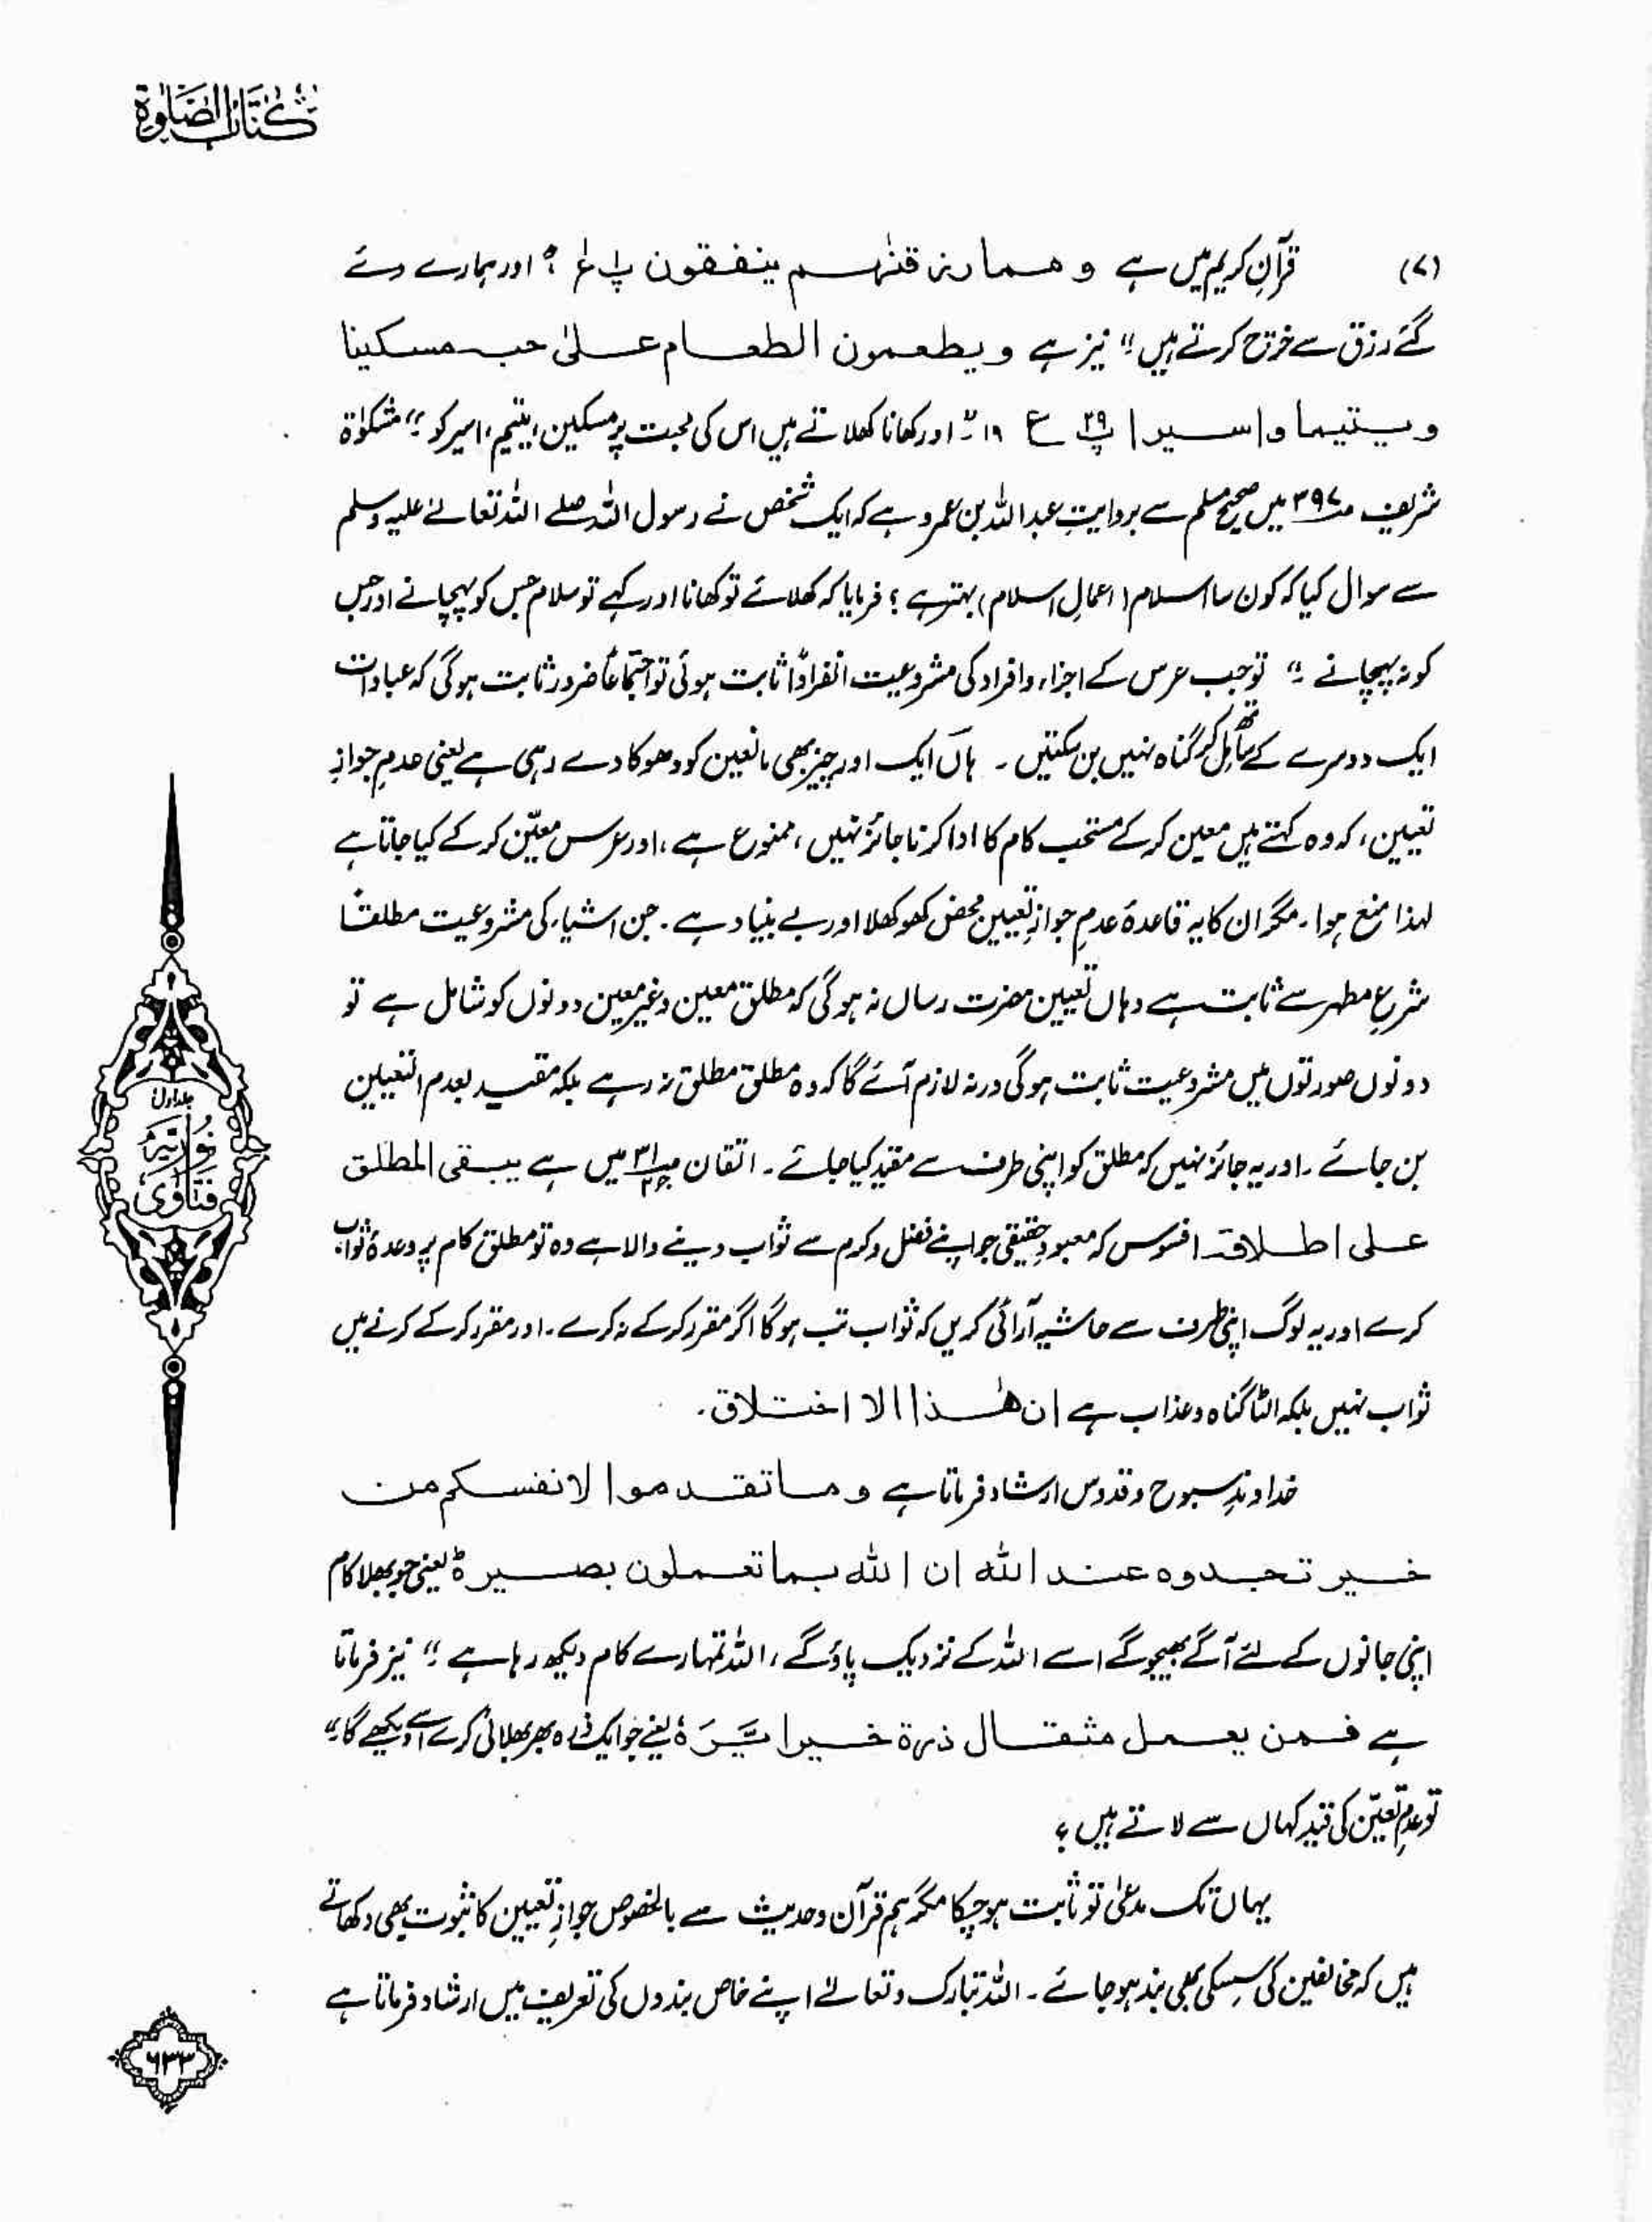 کتاب الصلوٰۃ
(۷) قرآنِ کریم میں ہے ومما رزقنٰہم ینفقون پ۱ ع۱ ؟ اور ہمارے دئے
گئے رزق سے خرچ کرتے ہیں ‘‘ نیز ہے ویطعمون الطعام علیٰ حبہ مسکینا
ویتیما واسیرا پ۲۹ ع ۱۹ ’’ اور کھانا کھلاتے ہیں اس کی محبت پر مسکین، یتیم، اسیر کو ‘‘ مشکوٰۃ
شریف ص۳۹۷ میں صحیح مسلم سے بروایتِ عبداللہ بن عمرو ہے کہ ایک شخص نے رسول اللہ صلے اللہ تعالےٰ علیہ وسلم
سے سوال کیا کہ کون سا اسلام (اعمالِ اسلام) بہتر ہے ؟ فرمایا کہ کھلائے تو کھانا اور کہے تو سلام جس کو پہچانے اور جس
کو نہ پہچانے ‘‘ تو جب عرس کے اجزاء و افراد کی مشروعیت انفراداً ثابت ہوئی تو اجتماعاً ضرور ثابت ہوگی کہ عبادات
ایک دوسرے کے ساتھ مل کر گناہ نہیں بن سکتیں ۔ ہاں ایک اور چیز بھی مانعین کو دھوکا دے رہی ہے یعنی عدمِ جوازِ
تعیین، کہ وہ کہتے ہیں معین کر کے مستحب کام کا ادا کرنا جائز نہیں، ممنوع ہے، اور عرس معیّن کر کے کیا جاتا ہے
لہٰذا منع ہوا۔ مگر ان کا یہ قاعدۂ عدمِ جوازِ تعیین محض کھوکھلا اور بے بنیاد ہے۔ جن اشیاء کی مشروعیت مطلقاً
شرعِ مطہر سے ثابت ہے وہاں تعیین مضرت رساں نہ ہوگی کہ مطلق معین و غیر معین دونوں کو شامل ہے تو
دونوں صورتوں میں مشروعیت ثابت ہوگی ورنہ لازم آئے گا کہ وہ مطلق مطلق نہ رہے بلکہ مقید بعدم التعیین
بن جائے ۔ اور یہ جائز نہیں کہ مطلق کو اپنی طرف سے مقید کیا جائے ۔ اتقان ص۳۱ ج۲ میں ہے یبقی المطلق
علی اطلاقہ افسوس کہ معبودِ حقیقی جو اپنے فضل و کرم سے ثواب دینے والا ہے وہ تو مطلق کام پر وعدۂ ثواب
کرے اور یہ لوگ اپنی طرف سے حاشیہ آرائی کریں کہ ثواب تب ہوگا اگر مقرر کر کے نہ کرے۔ اور مقرر کر کے کرنے میں
ثواب نہیں بلکہ الٹا گناہ و عذاب ہے ان ھٰذا الا اختلاق۔
خداوندِ سبوح و قدوس ارشاد فرماتا ہے وما تقدموا لانفسکم من
خیر تجدوہ عند اللہ ان اللہ بما تعملون بصیر ۃ یعنی جو بھلا کام
اپنی جانوں کے لئے آگے بھیجو گے اسے اللہ کے نزدیک پاؤ گے، اللہ تمہارے کام دیکھ رہا ہے ‘‘ نیز فرماتا
ہے فمن یعمل مثقال ذرۃ خیرا یَّرَہٗ یعنے جو ایک ذرہ بھر بھلائی کرے اسے دیکھے گا ‘‘
تو عدمِ تعیّن کی قید کہاں سے لاتے ہیں ؟
یہاں تک مدعیٰ تو ثابت ہو چکا مگر ہم قرآن و حدیث سے بالخصوص جوازِ تعیین کا ثبوت بھی دکھاتے
ہیں کہ مخالفین کی سِسکی بھی بند ہو جائے ۔ اللہ تبارک و تعالےٰ اپنے خاص بندوں کی تعریف میں ارشاد فرماتا ہے
جلد اول
نوریہ
فتاویٰ
۶۳۳